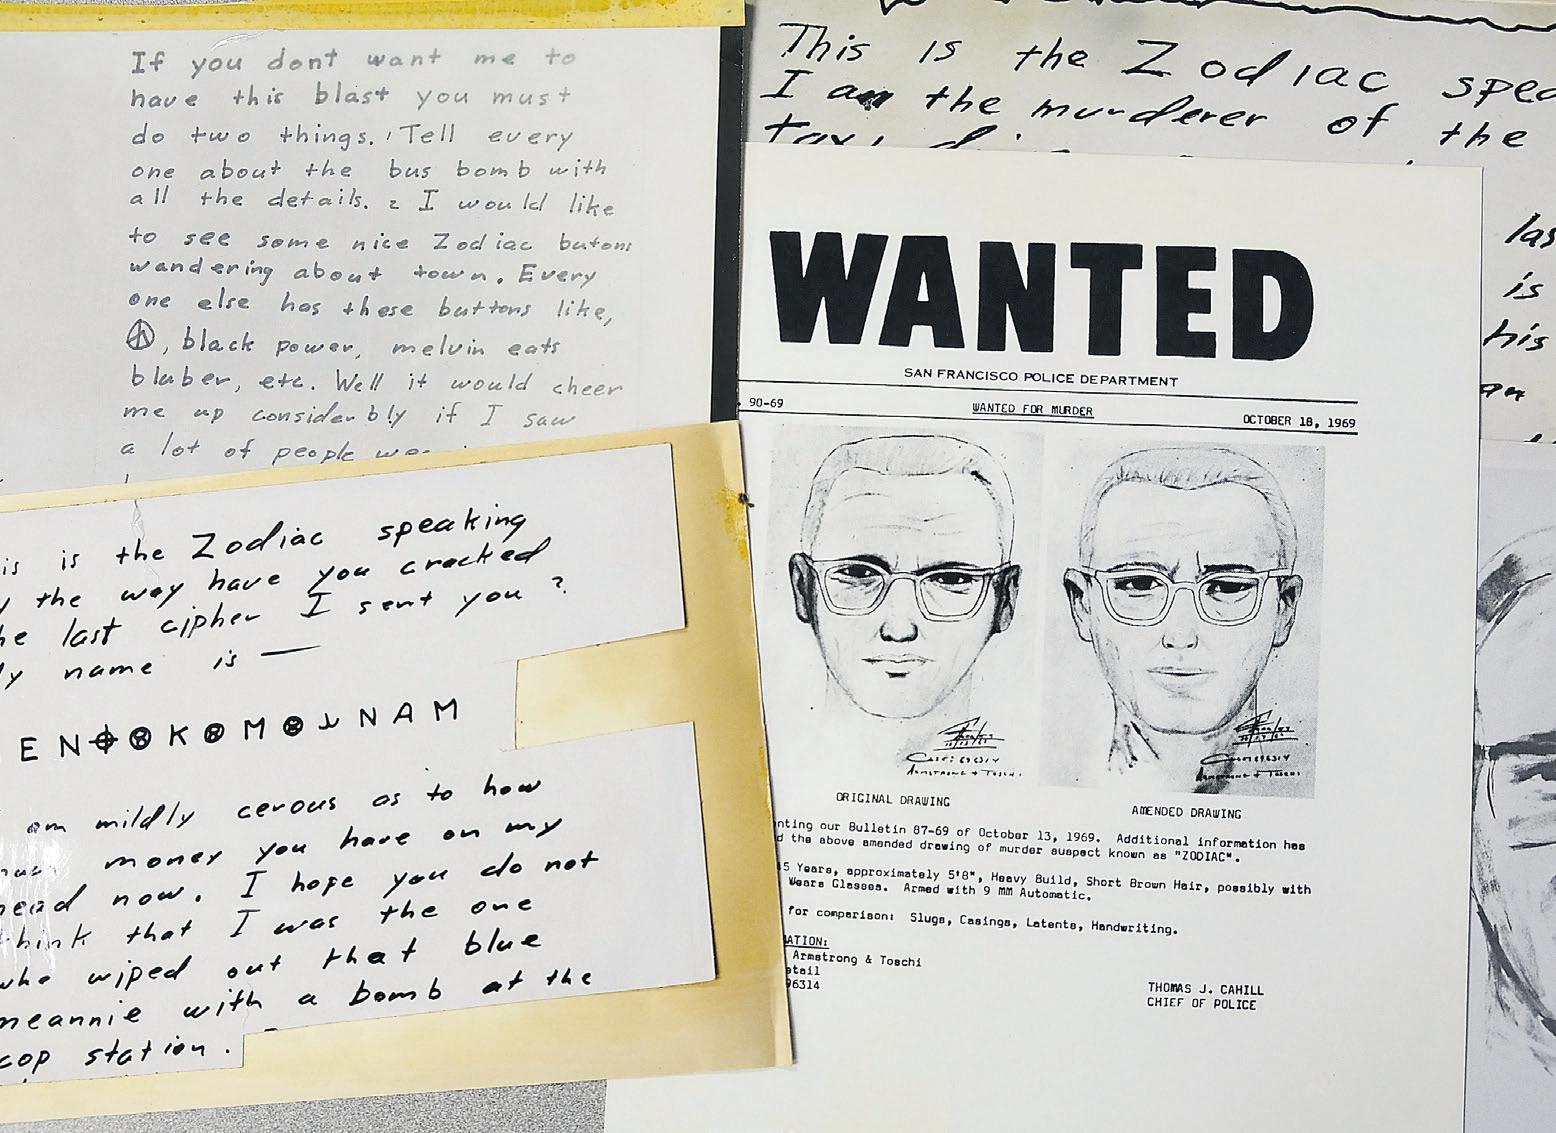 If you dont want me to
have this blast you must
do two things. 1 Tell every
one about the bus bomb with
all the details. 2 I would like
to see some nice Zodiac butons
wandering about town. Every
one else has these buttons like,
, black power, melvin eats
bluber, etc. Well it would cheer
me up considerbly if I saw
a lot of people
This is the Zodiac
I am the murderer of the
las
is
his
an
is is the Zodiac speaking
the way have you cracked
he last cipher I sent you ?
y name is —
E N K M N A M
am mildly cerous as to how
money you have on my
head now. I hope you do not
think that I was the one
who wiped out that blue
meannie with a bomb at the
cop station.
WANTED
SAN FRANCISCO POLICE DEPARTMENT
90-69 WANTED FOR MURDER OCTOBER 18, 1969
ORIGINAL DRAWING AMENDED DRAWING
nting our Bulletin 87-69 of October 13, 1969. Additional information has
d the above amended drawing of murder suspect known as "ZODIAC".
5 Years, approximately 5'8", Heavy Build, Short Brown Hair, possibly with
Wears Glasses. Armed with 9 MM Automatic.
for comparison: Slugs, Casings, Latents, Handwriting.
ATION:
Armstrong & Toschi
etail
96314
THOMAS J. CAHILL
CHIEF OF POLICE